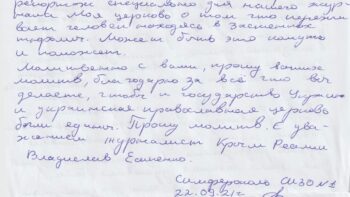 репортаж специально для вашего жур
нала Моя церковь о том что пережи
вает человек находясь в застенках
тюрьмы. Может быть это кому-то
и поможет.
Молитвенно с вами прошу ваших
молитв, благодарю за всё что вы
делаете, чтобы и государство Украина
и украинская православная церковь
были едины. Прошу молитв. С ува-
жением журналист Крым Реалии
Владислав Есипенко.
Симферополь СИЗО №1
22.09.21г.